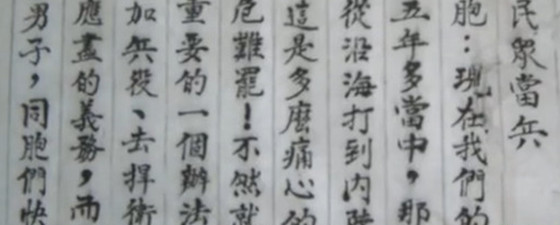 民眾當兵
胞：現在我們的
五年多當中，那
從沿海打到內陸
這是多麼痛心的
危難罷！不然就
重要的一個辦法
加兵役、去捍衛
應盡的義務，而
男子，同胞們快